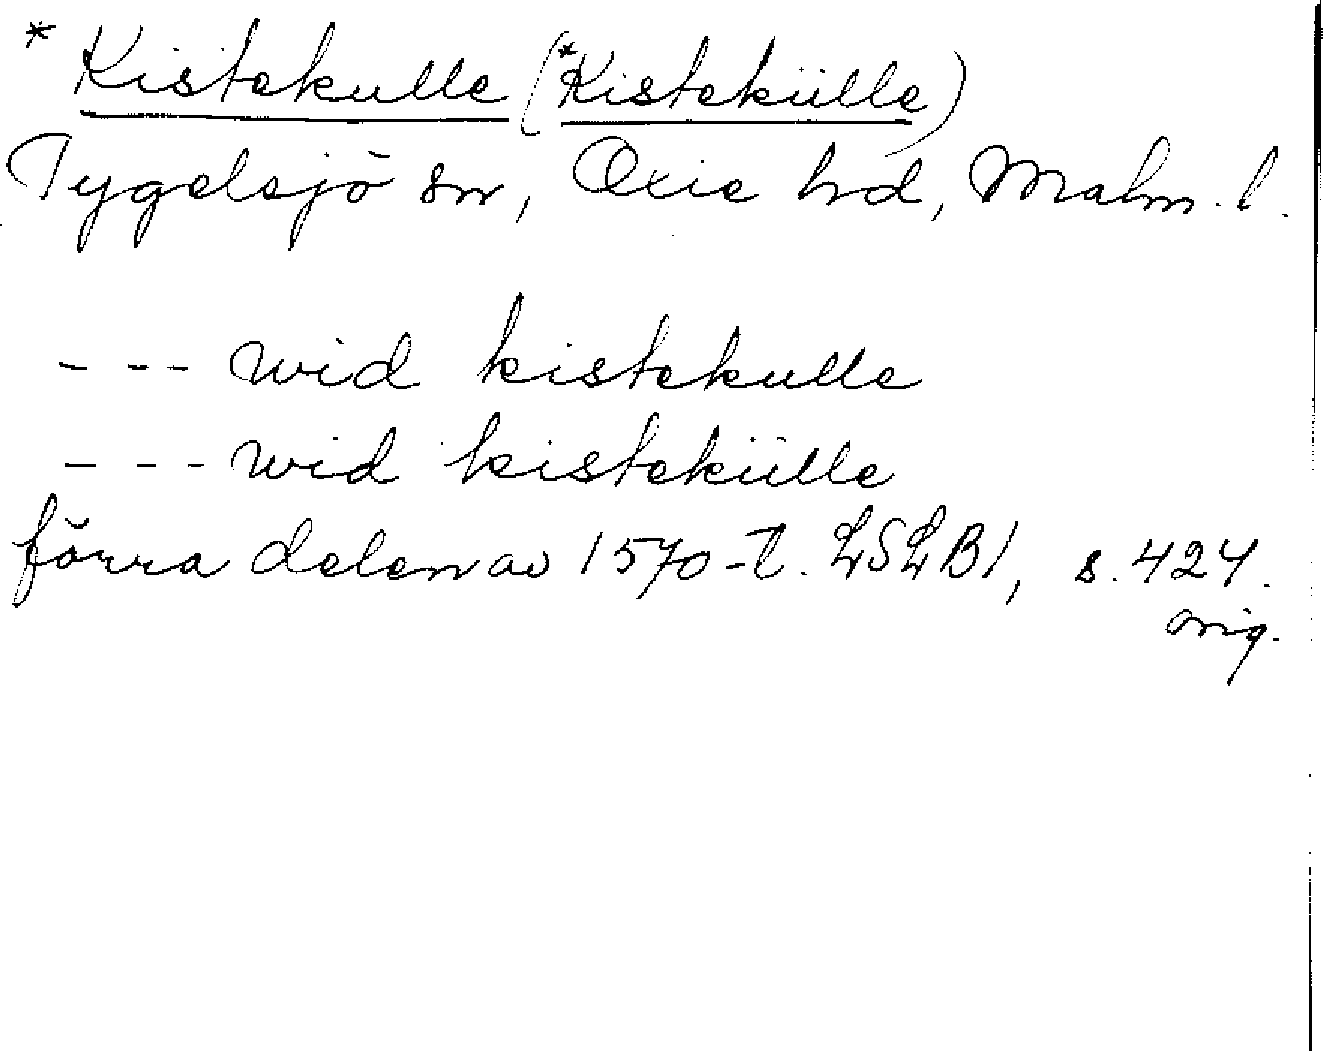 * Kistekulle (*Kistekülle)
Tygelsjö sn, Oxie hd, Malm. l.
--- wid kistekulle
--- wid kistekülle
förra delen av 1570-t. LSLB1, s. 424.
orig.